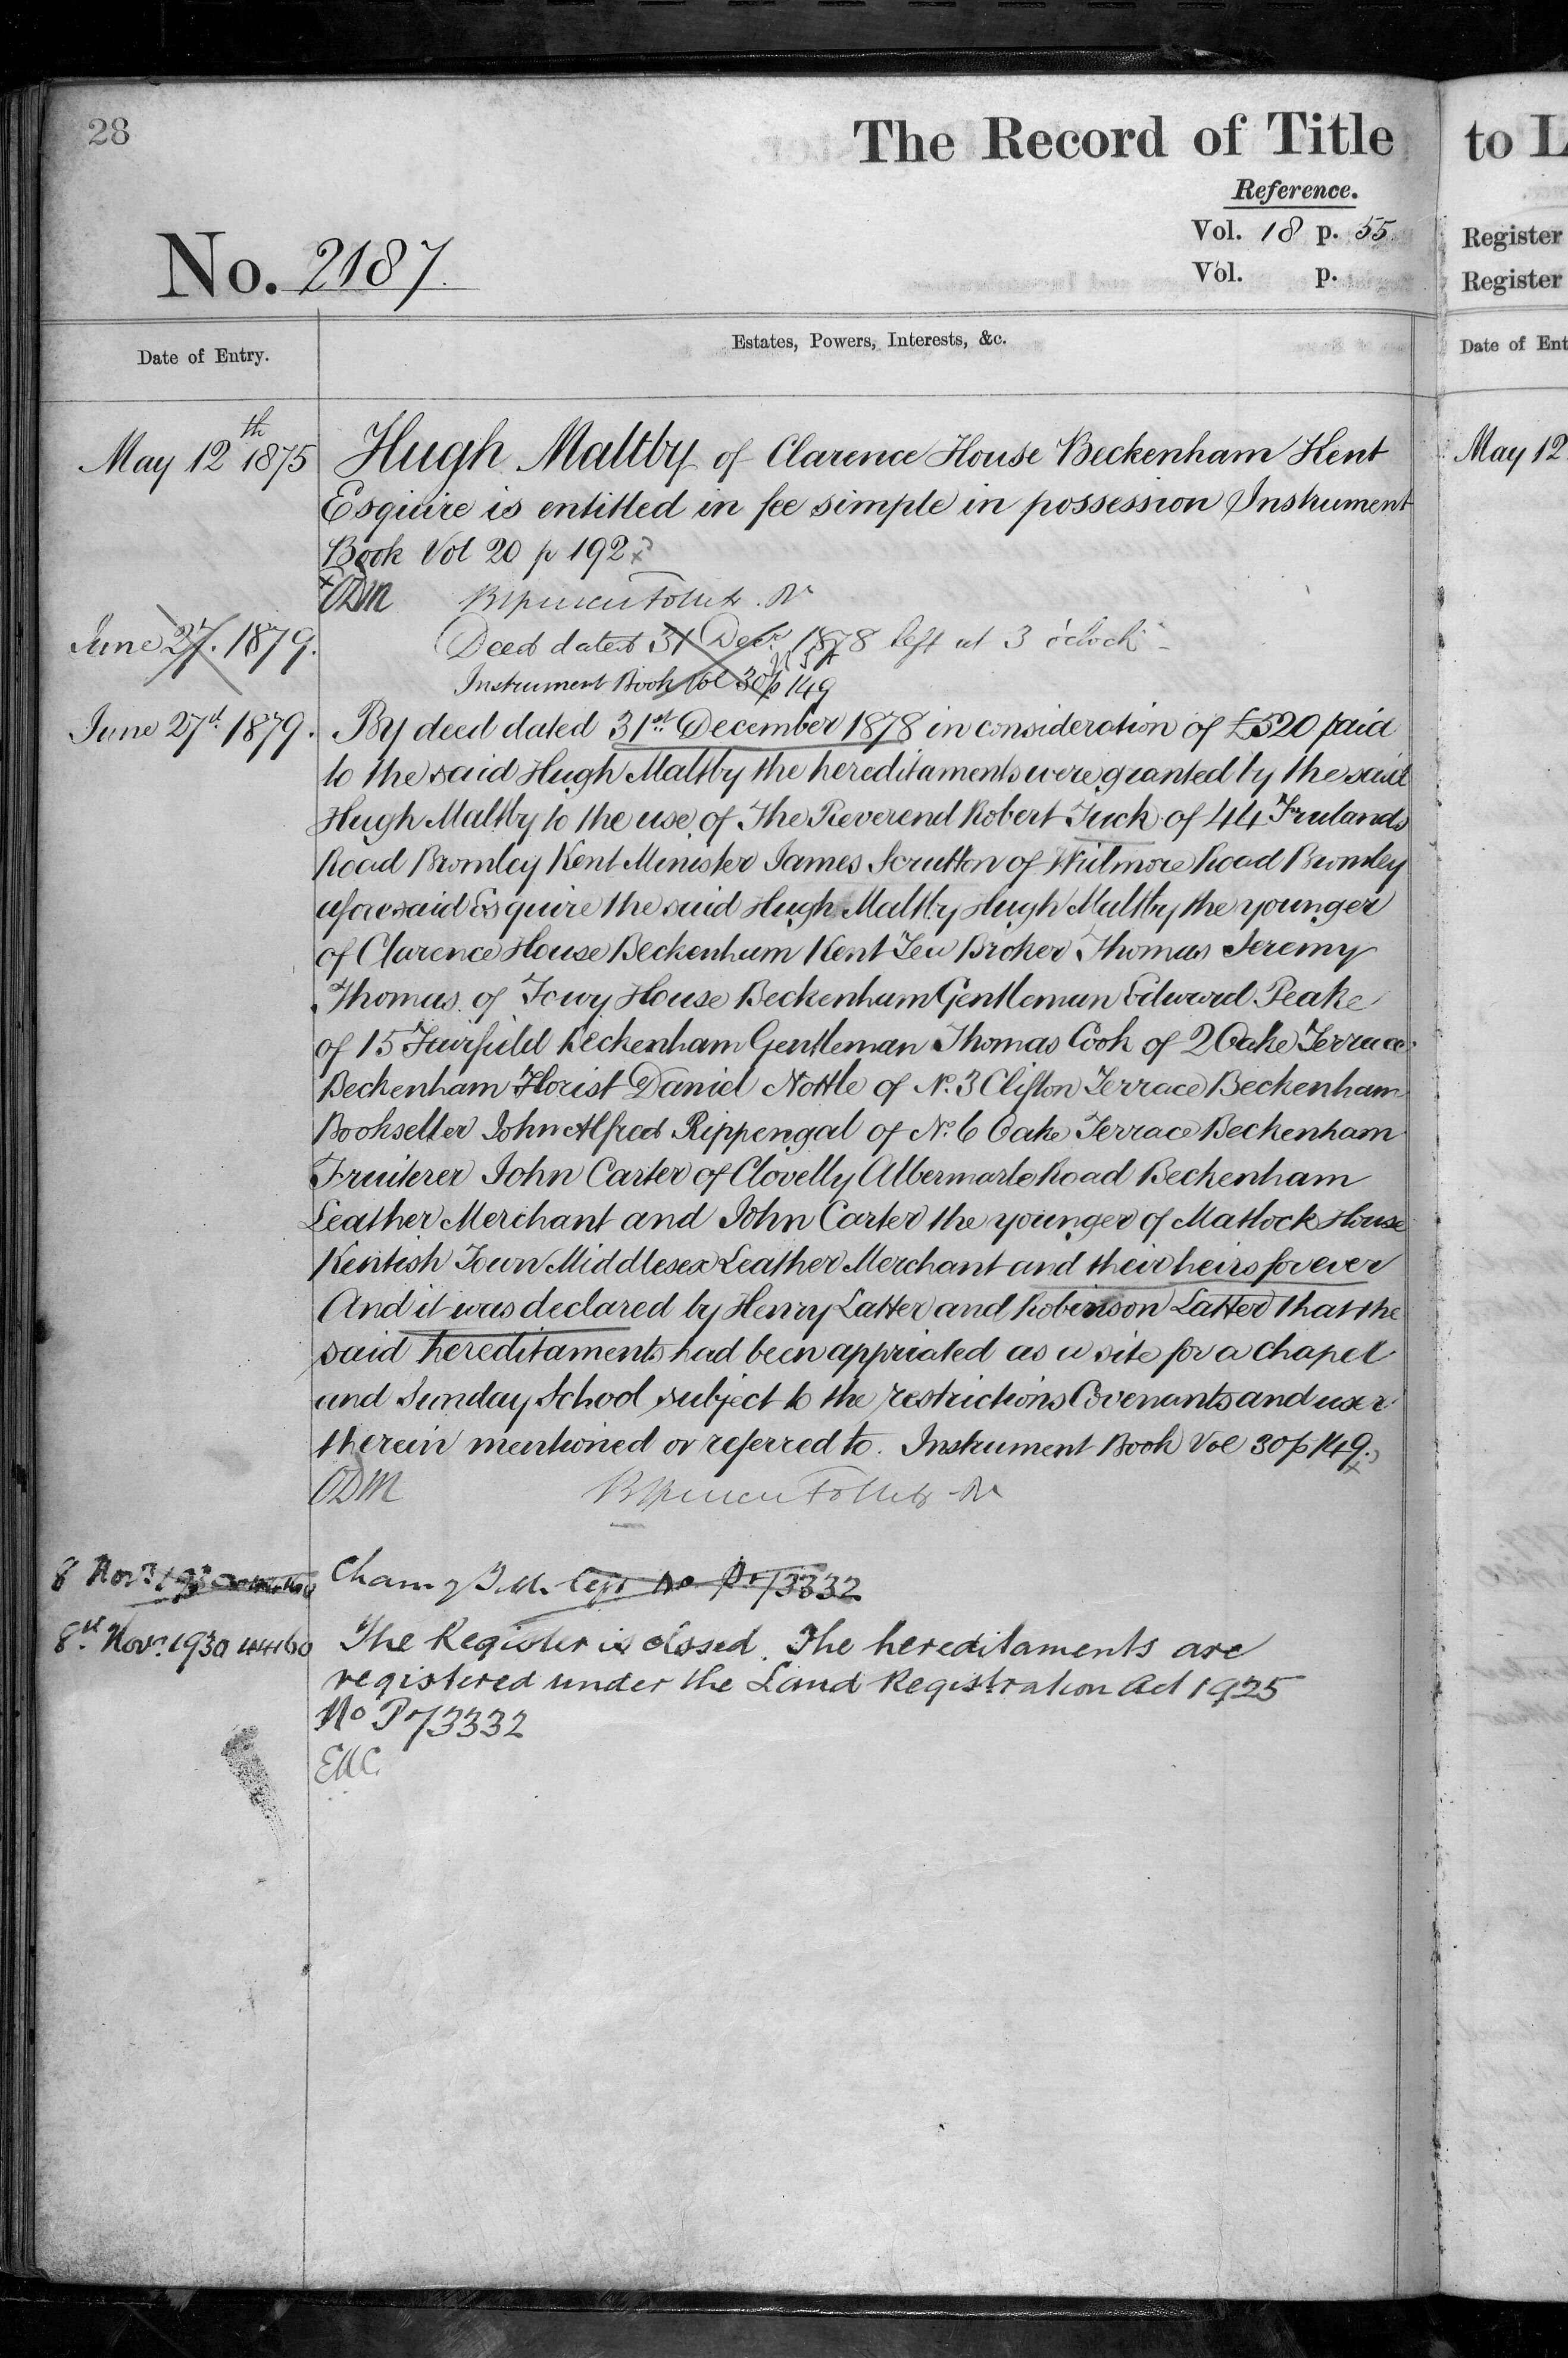 28
The Record of Title
to L
Reference.
Vol. 18 p. 55
Register
Vol. p.
Register
No. 2187.
Date of Entry.
Estates, Powers, Interests, &c.
Date of Ent
May 12th 1875
Hugh Maltby of Clarence House Beckenham Kent
May 12
Esquire is entitled in fee simple in possession Instrument
Book Vol 20 p 192
ODM
June 27. 1879.
Deed dated 31 Decr 1878 left at 3 o'clock
Instrument Book Vol 30 p 149
June 27th 1879.
By deed dated 31st December 1878 in consideration of £520 paid
to the said Hugh Maltby the hereditaments were granted by the said
Hugh Maltby to the use of The Reverend Robert Tuck of 44
Road Bromley Kent Minister James Scrutton of Widmore Road Bromley
aforesaid Esquire the said Hugh Maltby Hugh Maltby the younger
of Clarence House Beckenham Kent Tea Broker Thomas Jeremy
Thomas of Towy House Beckenham Gentleman Edward Peake
of 15 Fairfield Beckenham Gentleman Thomas Cook of 2 Oake Terrace
Beckenham Florist Daniel Nottle of No. 3 Clifton Terrace Beckenham
Bookseller John Alfred Rippengal of No. 6 Oake Terrace Beckenham
Fruiterer John Carter of Clovelly Albermarle Road Beckenham
Leather Merchant and John Carter the younger of Matlock House
Kentish Town Middlesex Leather Merchant and their heirs for ever
And it was declared by Henry Latter and Robinson Latter that the
said hereditaments had been appriated as a site for a chapel
and Sunday School subject to the restrictions Covenants and user
therein mentioned or referred to. Instrument Book Vol 30 p 149.
ODM
8 Novr
No P73332
8th Novr. 1930 44160
The Register is closed. The hereditaments are
registered under the Land Registration Act 1925
No P73332
EMC.